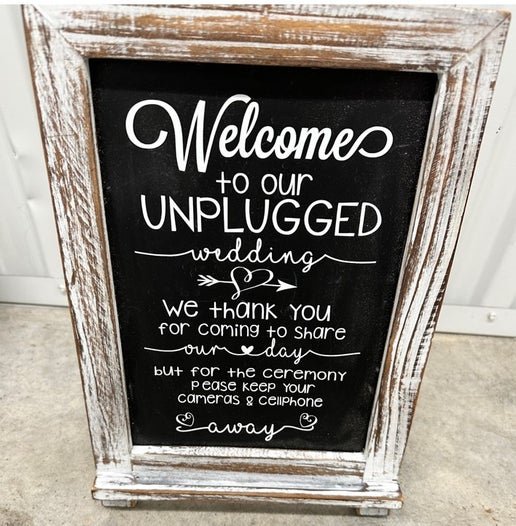 Welcome
to our
UNPLUGGED
wedding
we thank you
for coming to share
our day
but for the ceremony
please keep your
cameras & cellphone
away